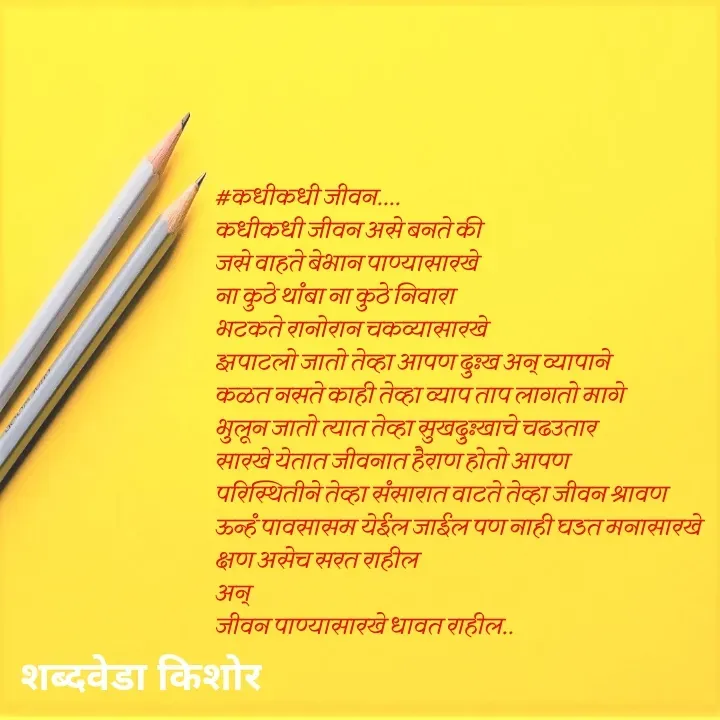 #कधीकधी जीवन....
कधीकधी जीवन असे बनते की
जसे वाहते बेभान पाण्यासारखे
ना कुठे थांबा ना कुठे निवारा
भटकते रानोरान चकव्यासारखे
झपाटलो जातो तेव्हा आपण दुःख अन् व्यापाने
कळत नसते काही तेव्हा व्याप ताप लागतो मागे
भुलून जातो त्यात तेव्हा सुखदुःखाचे चढउतार
सारखे येतात जीवनात हैराण होतो आपण
परिस्थितीने तेव्हा संसारात वाटते तेव्हा जीवन श्रावण
ऊन्हं पावसासम येईल जाईल पण नाही घडत मनासारखे
क्षण असेच सरत राहील
अन्
जीवन पाण्यासारखे धावत राहील..
शब्दवेडा किशोर